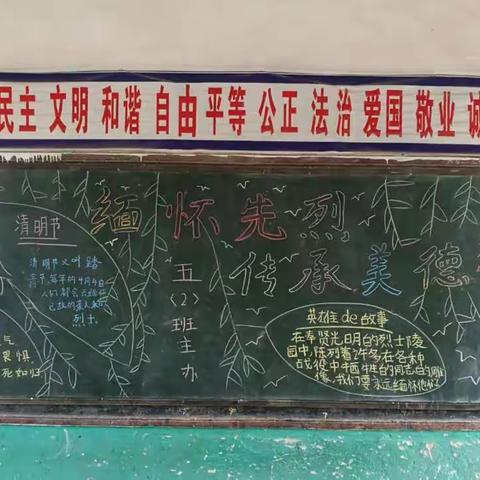 民主 文明 和谐 自由 平等 公正 法治 爱国 敬业 诚
缅怀先烈
传承美德
清明节
清明节又叫踏
青节,每年的4月4日
人们都会去给
已故的亲人和
烈士。
气
畏惧
死如归
五〈2〉班主办
英雄de故事
在奉贤光明的烈士陵
园中,陈列着许多在各种
战役中牺牲的同志的雕
像,我们要永远缅怀他们